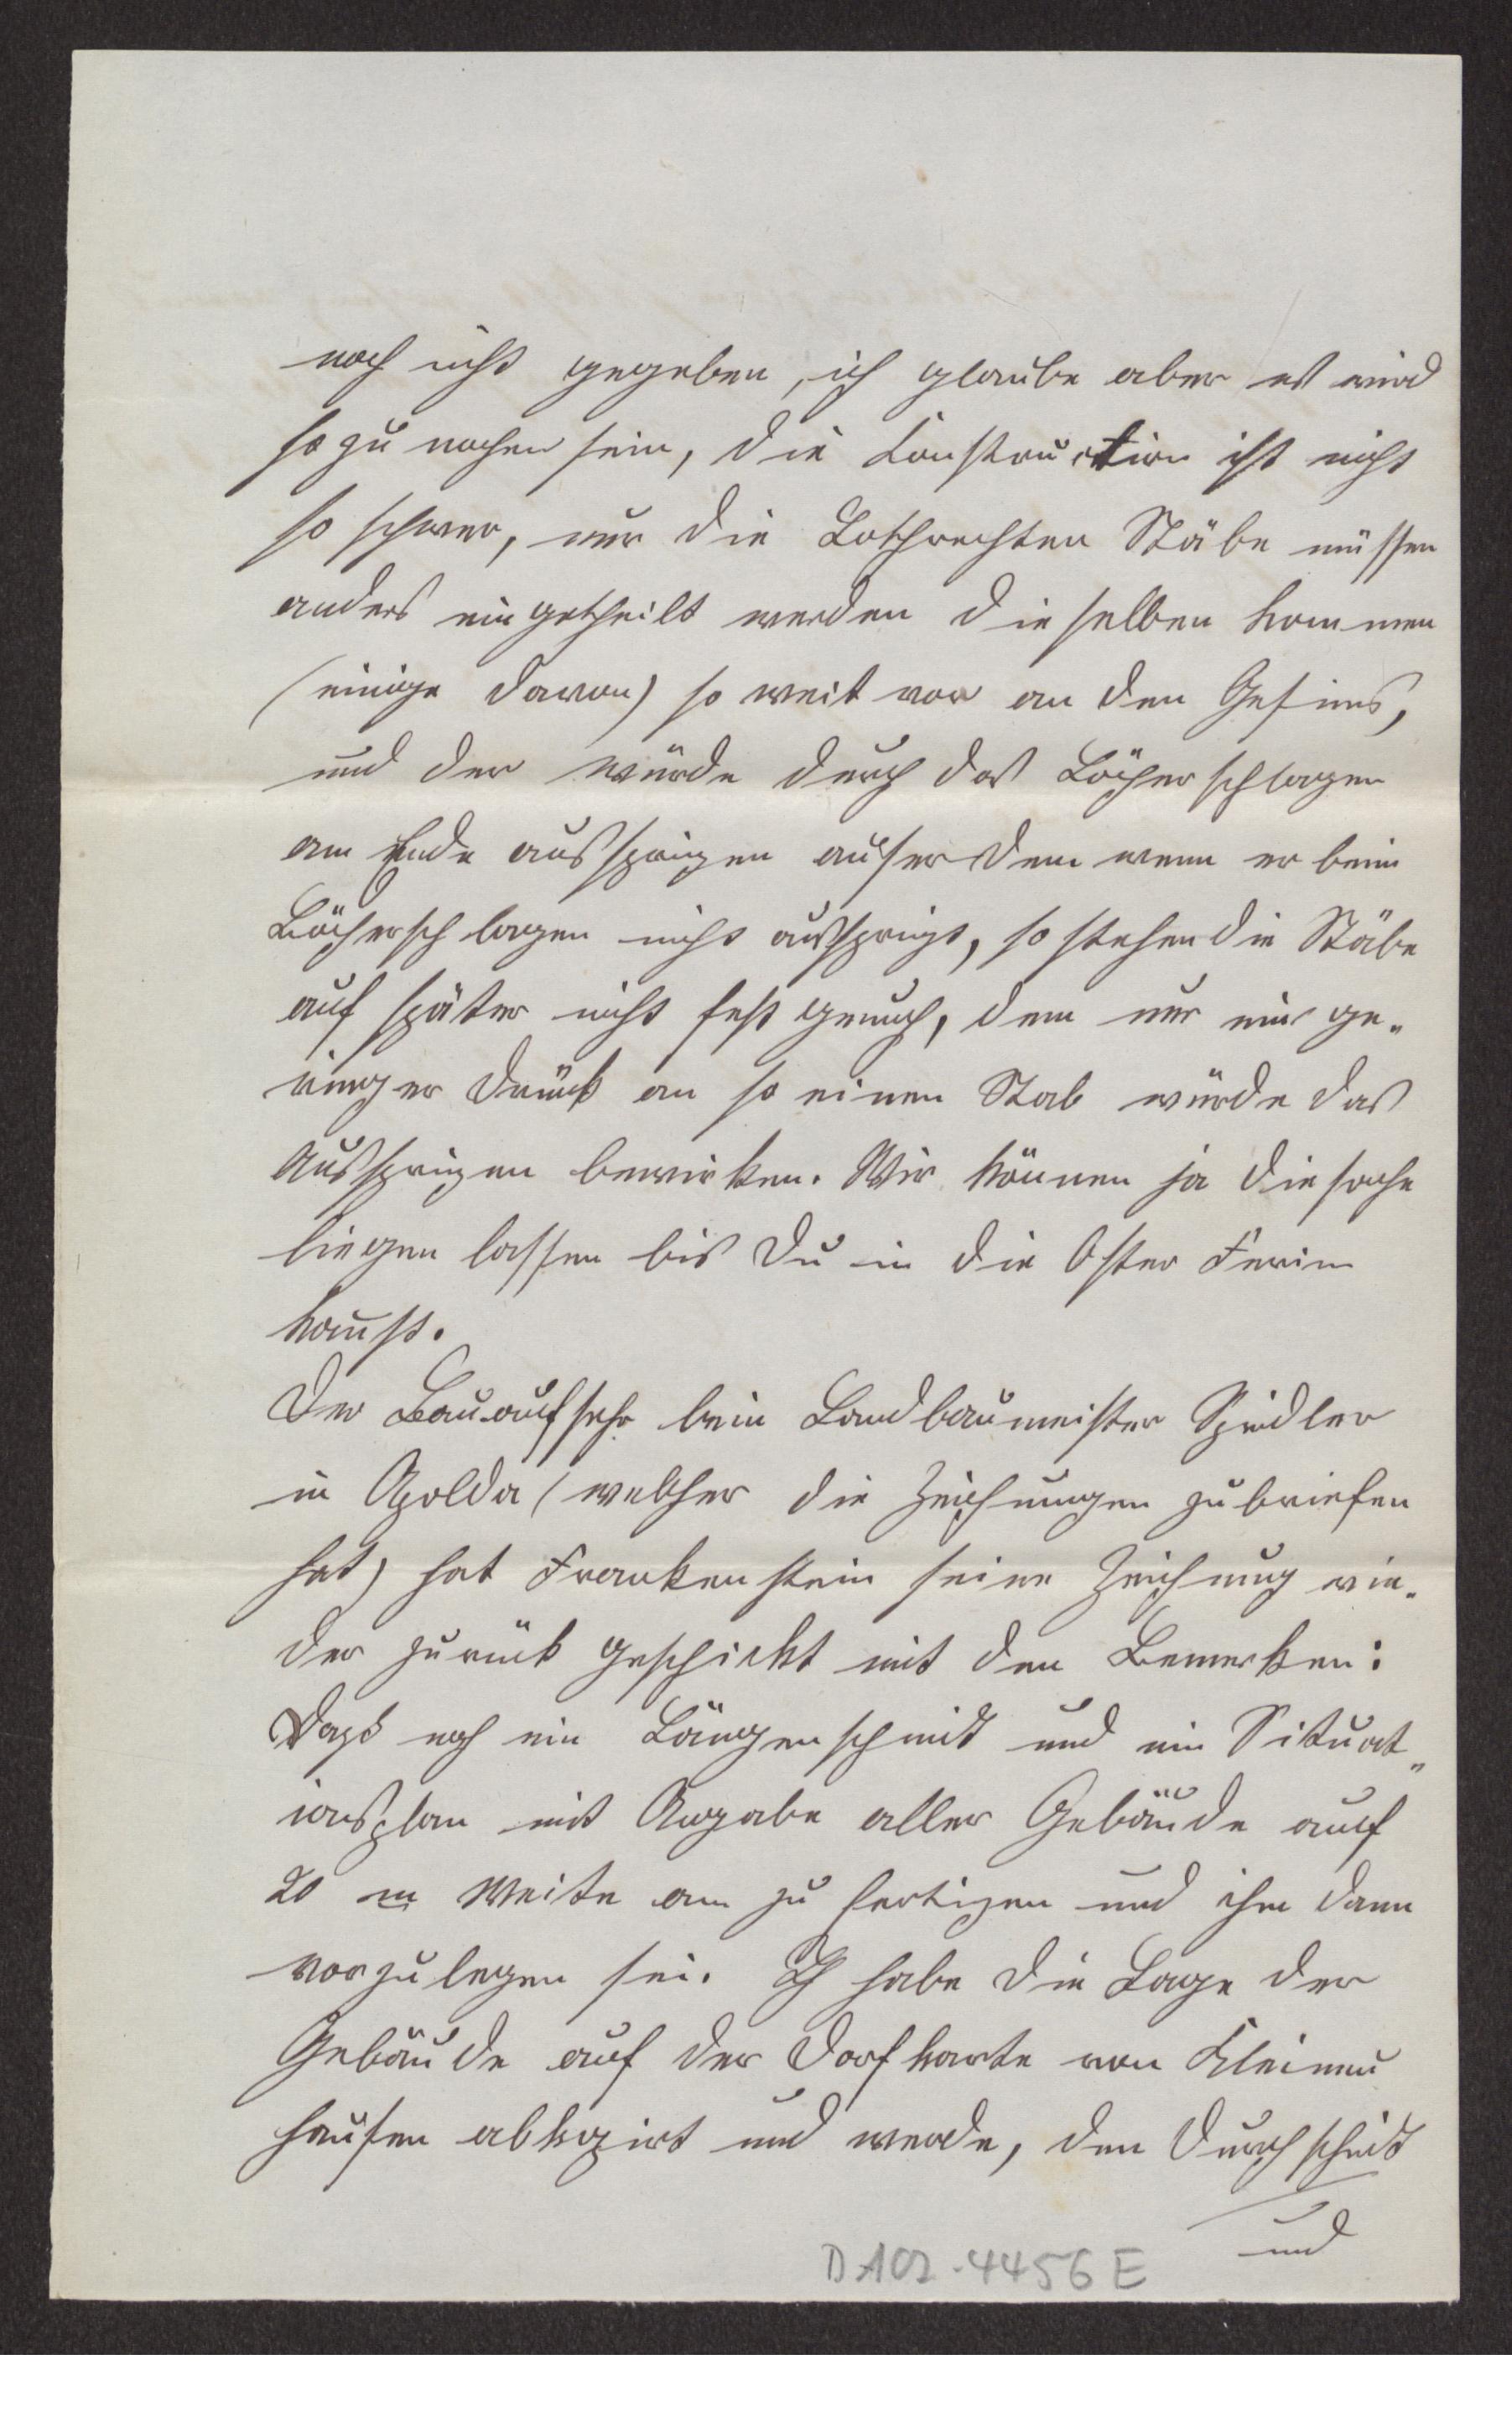 noch nicht gegeben, ich glaube aber es wird
so zu machen sein, die Construction ist nicht
so schwer, nur die Lothrechten Stäbe müssen
anders eingetheilt werden dieselben kommen
(einige davon) so weit vor an den Gesims,
und der würde durch das Löcherschlagen
am Ende ausspringen auserdem wenn er beim
Löcherschlagen nicht ausspringt, so stehen die Stäbe
auf später nicht fest genuch, denn nur ein ge„
ringer Druck an so einen Stab würde das
Ausspringen bewirken. Wir können ja die sache
liegen lassen bis Du in die Oster Ferien
komst.
Der Bauaufsehr beim Landbaumeister Spindler
in Apolda (welcher die Zeichnungen zu briefen
hat) hat Frankenstein seine Zeichnung wie„
der zurück geschickt mit den Bemerken:
Daß noch ein Längenschnit und ein Situat„
ionsplan mit Angabe aller Gebäude auf
20 m Weite an zu fertigen und ihm dann
vorzulegen sei. Ich habe die Lage der
Gebäude auf der Dorfkarte von Kleineu
hausen abkopirt und werde, den Durchschnit
und
DA02-4456E